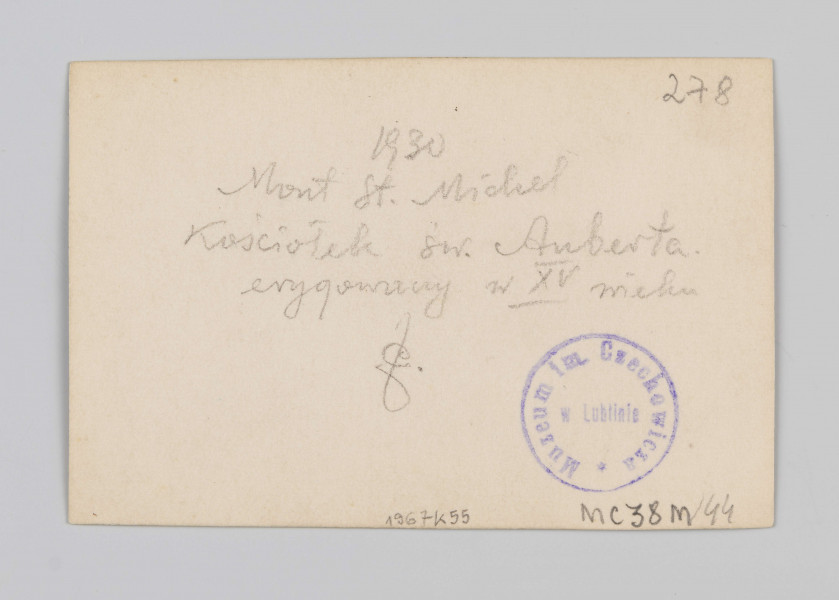 278
1930
Mont St. Michel
Kościołek św. Auberta.
erygowany w XV wieku
Muzeum im. Czechowicza
w Lublinie
1967K55
MC38M/44